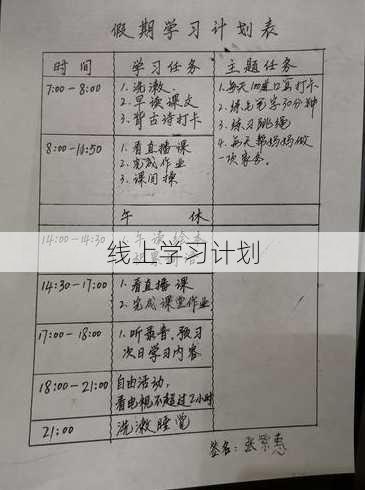 假期学习计划表
时间 学习任务 主题任务
7:00-8:00
1.洗漱.
2.早读课文
3.背古诗打卡
1.每天100道口算打卡
2.练毛笔字30分钟
3.练习跳绳
4.每天帮妈妈做
一次家务.
8:00-10:50
1.看直播课
2.完成作业
3.课间操
午 休
14:00-14:30
1.午读绘本
线上学习计划
14:30-17:00
1.看直播课
2.完成课堂作业
17:00-18:00
1.听录音.预习
次日学习内容
18:00-21:00
自由活动,
看电视不超过2小时
21:00
洗漱睡觉
签名:张紫惠